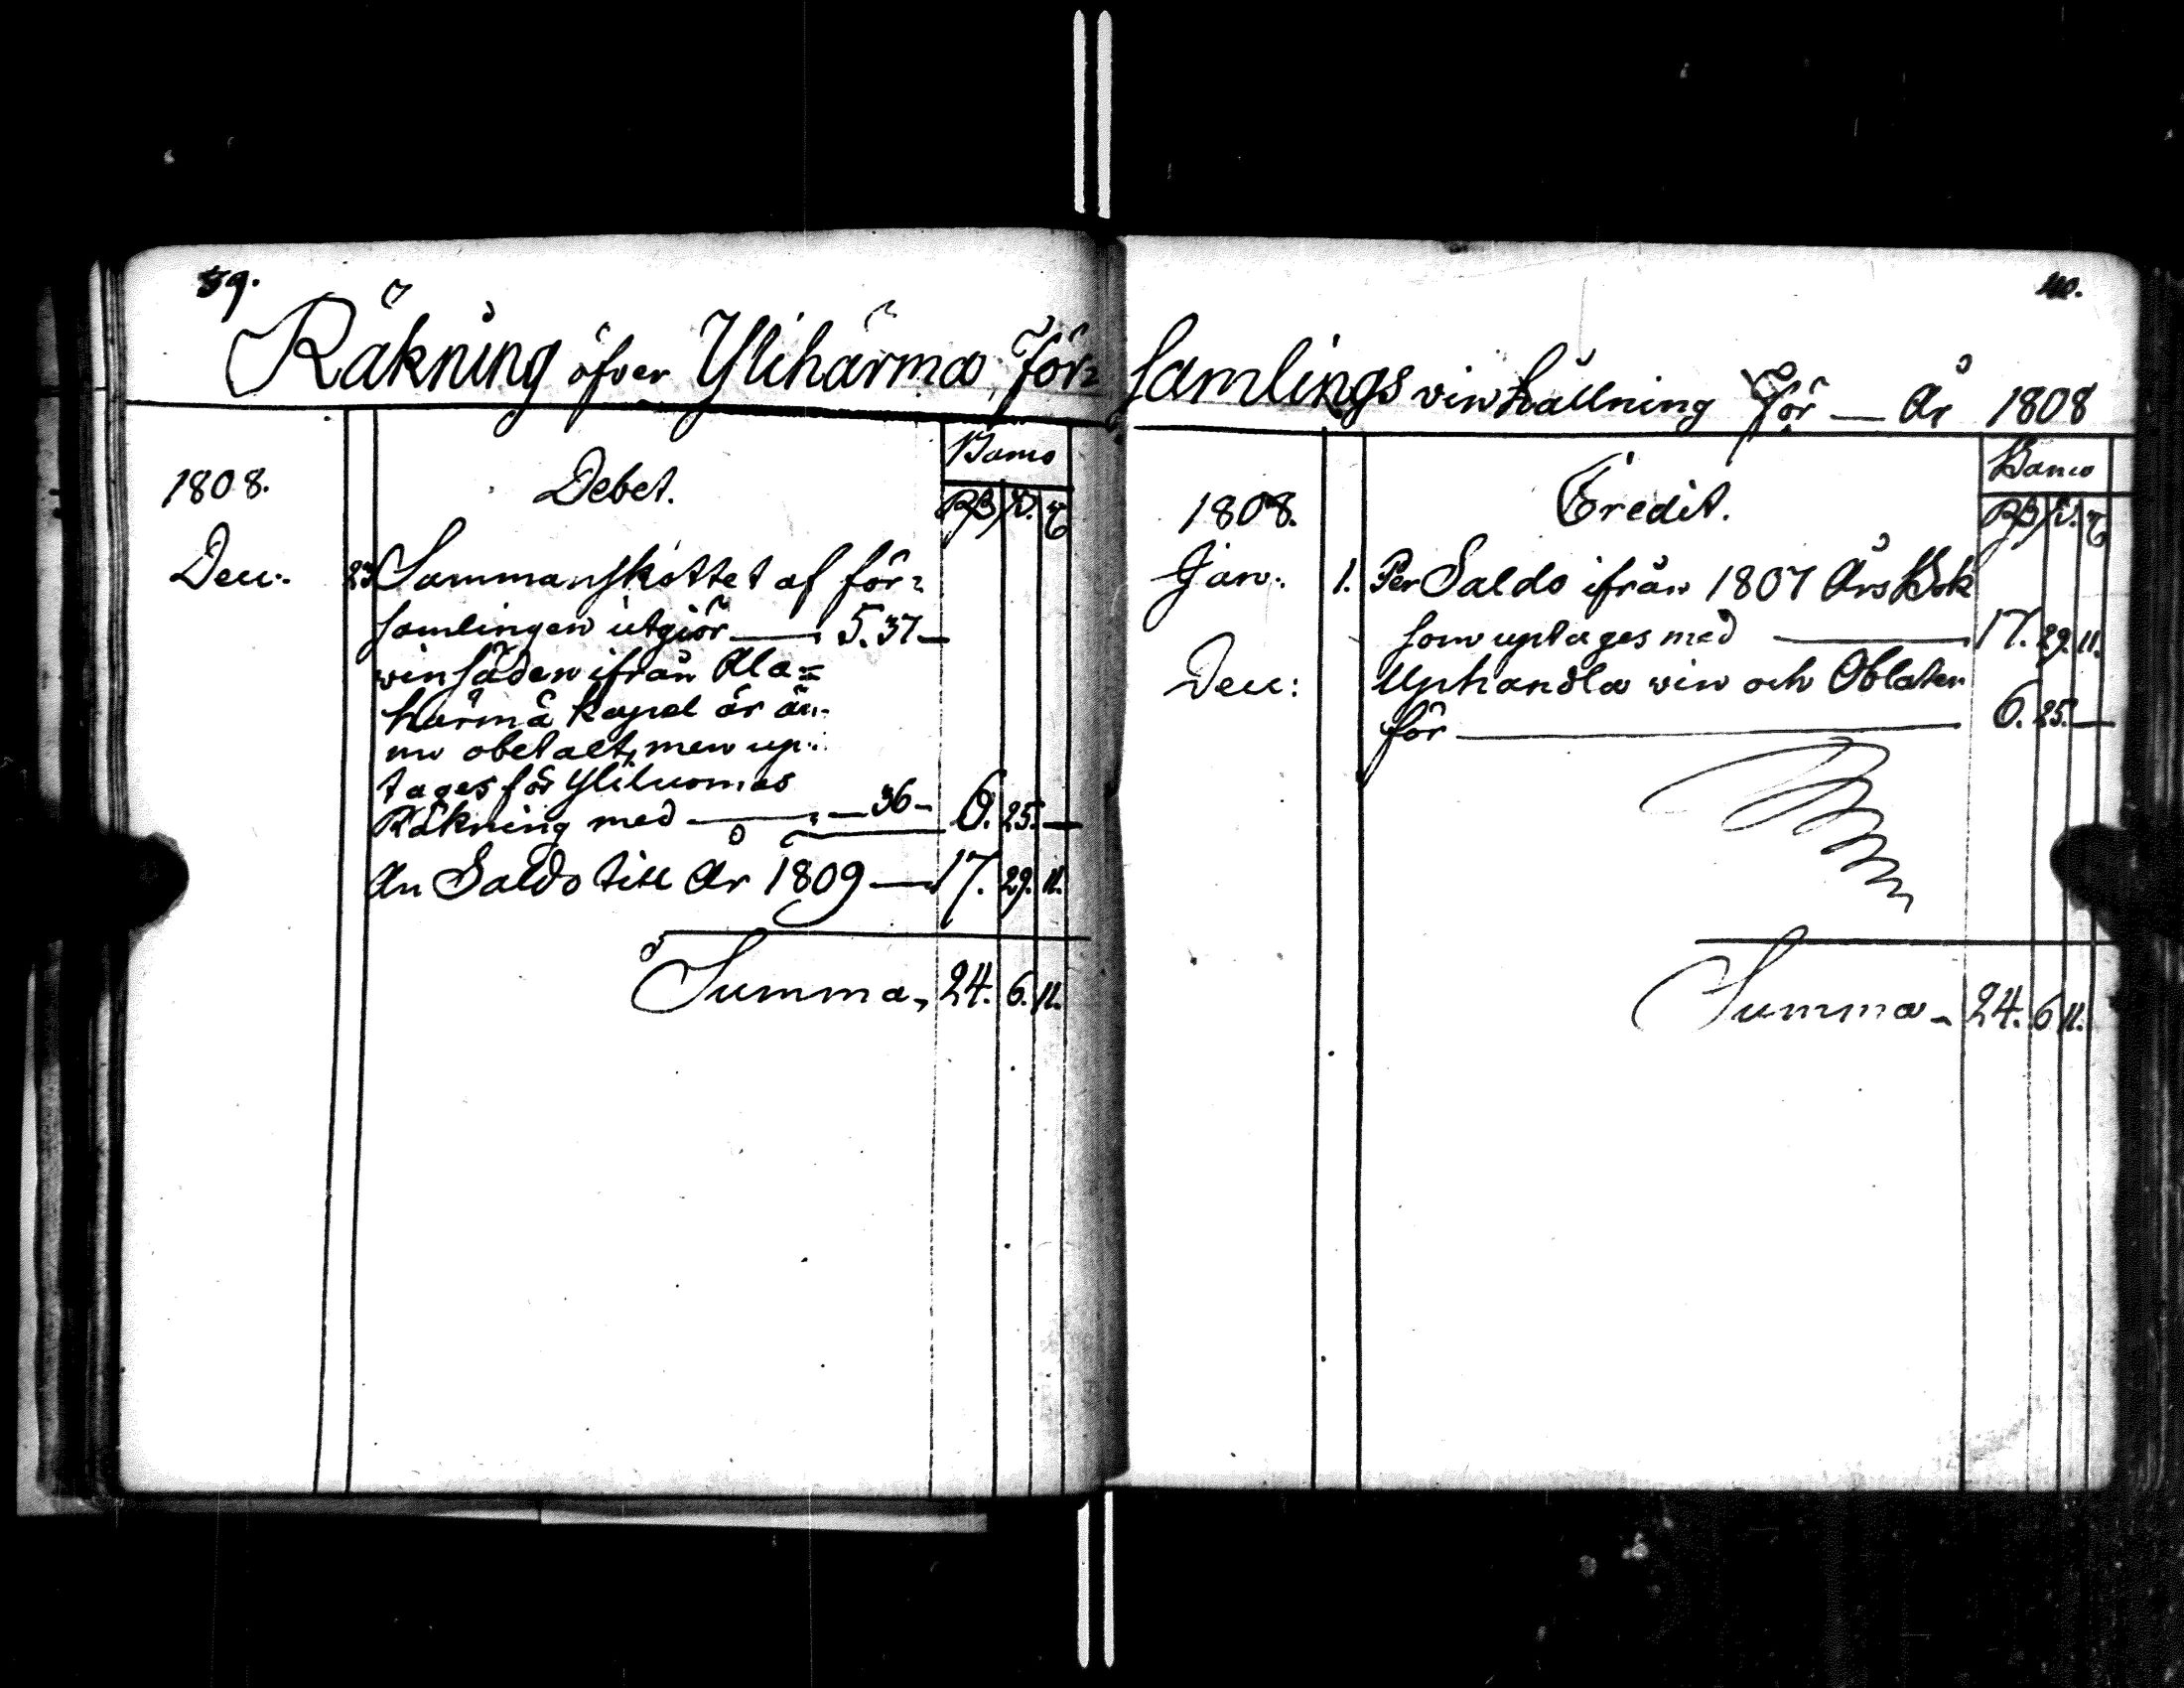 39.
Räkning öfver Ylihärmä För=
1808.
Debet.
Banco
Rß ß. rs
Dec:
23 Sammanskottet af för=
samlingen utgiör — 5. 37 —
vinsäden ifrån Ala=
härmä Kapel är än=
nu obetalt, men up=
tages för Yliluomas
Räkning med — " — 36 — 6. 25. —
An Saldo till År 1809 — 17. 29. 11.
Summa, 24. 6. 11.
40.
samlings vinhållning För — År 1808
1808.
Credit.
Banco
Rß ß. rs
Jan: 1. Per Saldo ifrån 1807 Års Bok
som uptages med — 17. 29. 11.
Dec: Uphandla vin och Oblater
för — 6. 25. —
Summa — 24. 6 11.